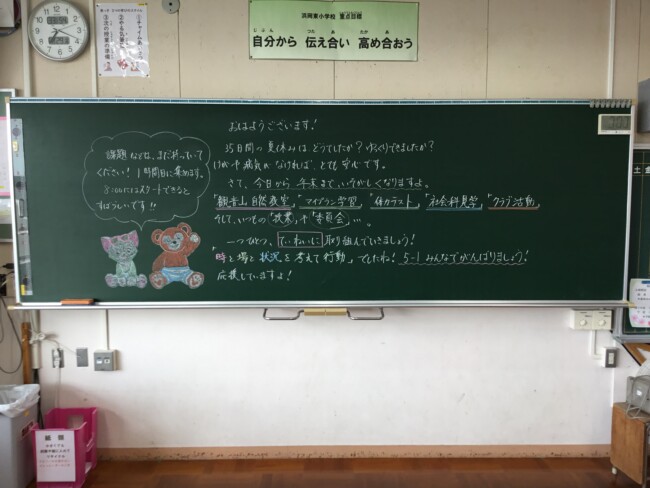 浜岡東小学校 重点目標
自分から 伝え合い 高め合おう
おはようございます!
35日間の夏休みは、どうでしたか?ゆっくりできましたか?
けがや病気がなければ、とても安心です。
さて、今日から 冬末まで、いそがしくなりますよ。
「観音山自然教室」「マイプラン学習」「体力テスト」「社会科見学」「クラブ活動」
そして、いつもの「授業」や「委員会」…。
一つひとつ、ていねいに取り組んでいきましょう!
「時と場と状況を考えて行動」でしたね!5-1 みんなでがんばりましょう!
応援していますよ!
課題などは、まだ持っていて
ください!1時間目に集めます。
8:00にはスタートできると
すばらしいです!!